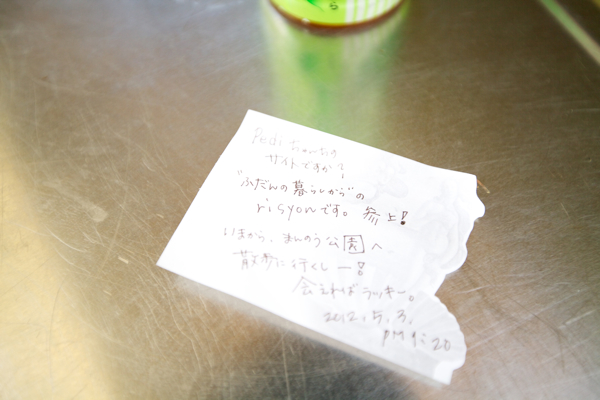 サイトですか?
"ふだんの暮らしから"の
risyonです。参上!
いまから、まんのう公園へ
散歩に行くしー!
会えればラッキー。
2012.5.3.
PM
ら